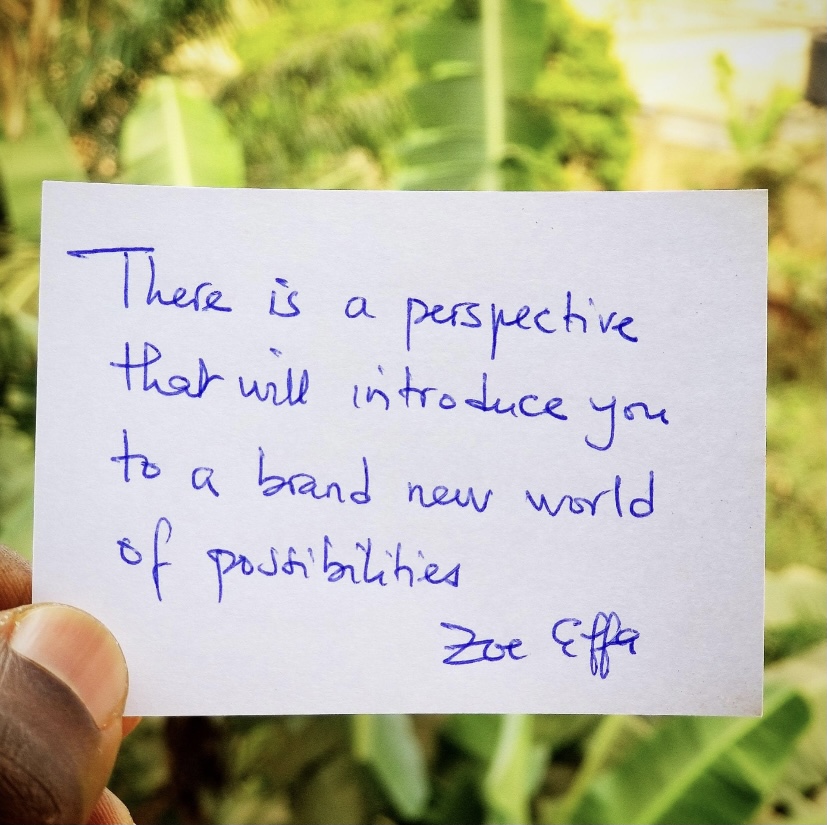 There is a perspective
that will introduce you
to a brand new world
of possibilities
Zoe Effa